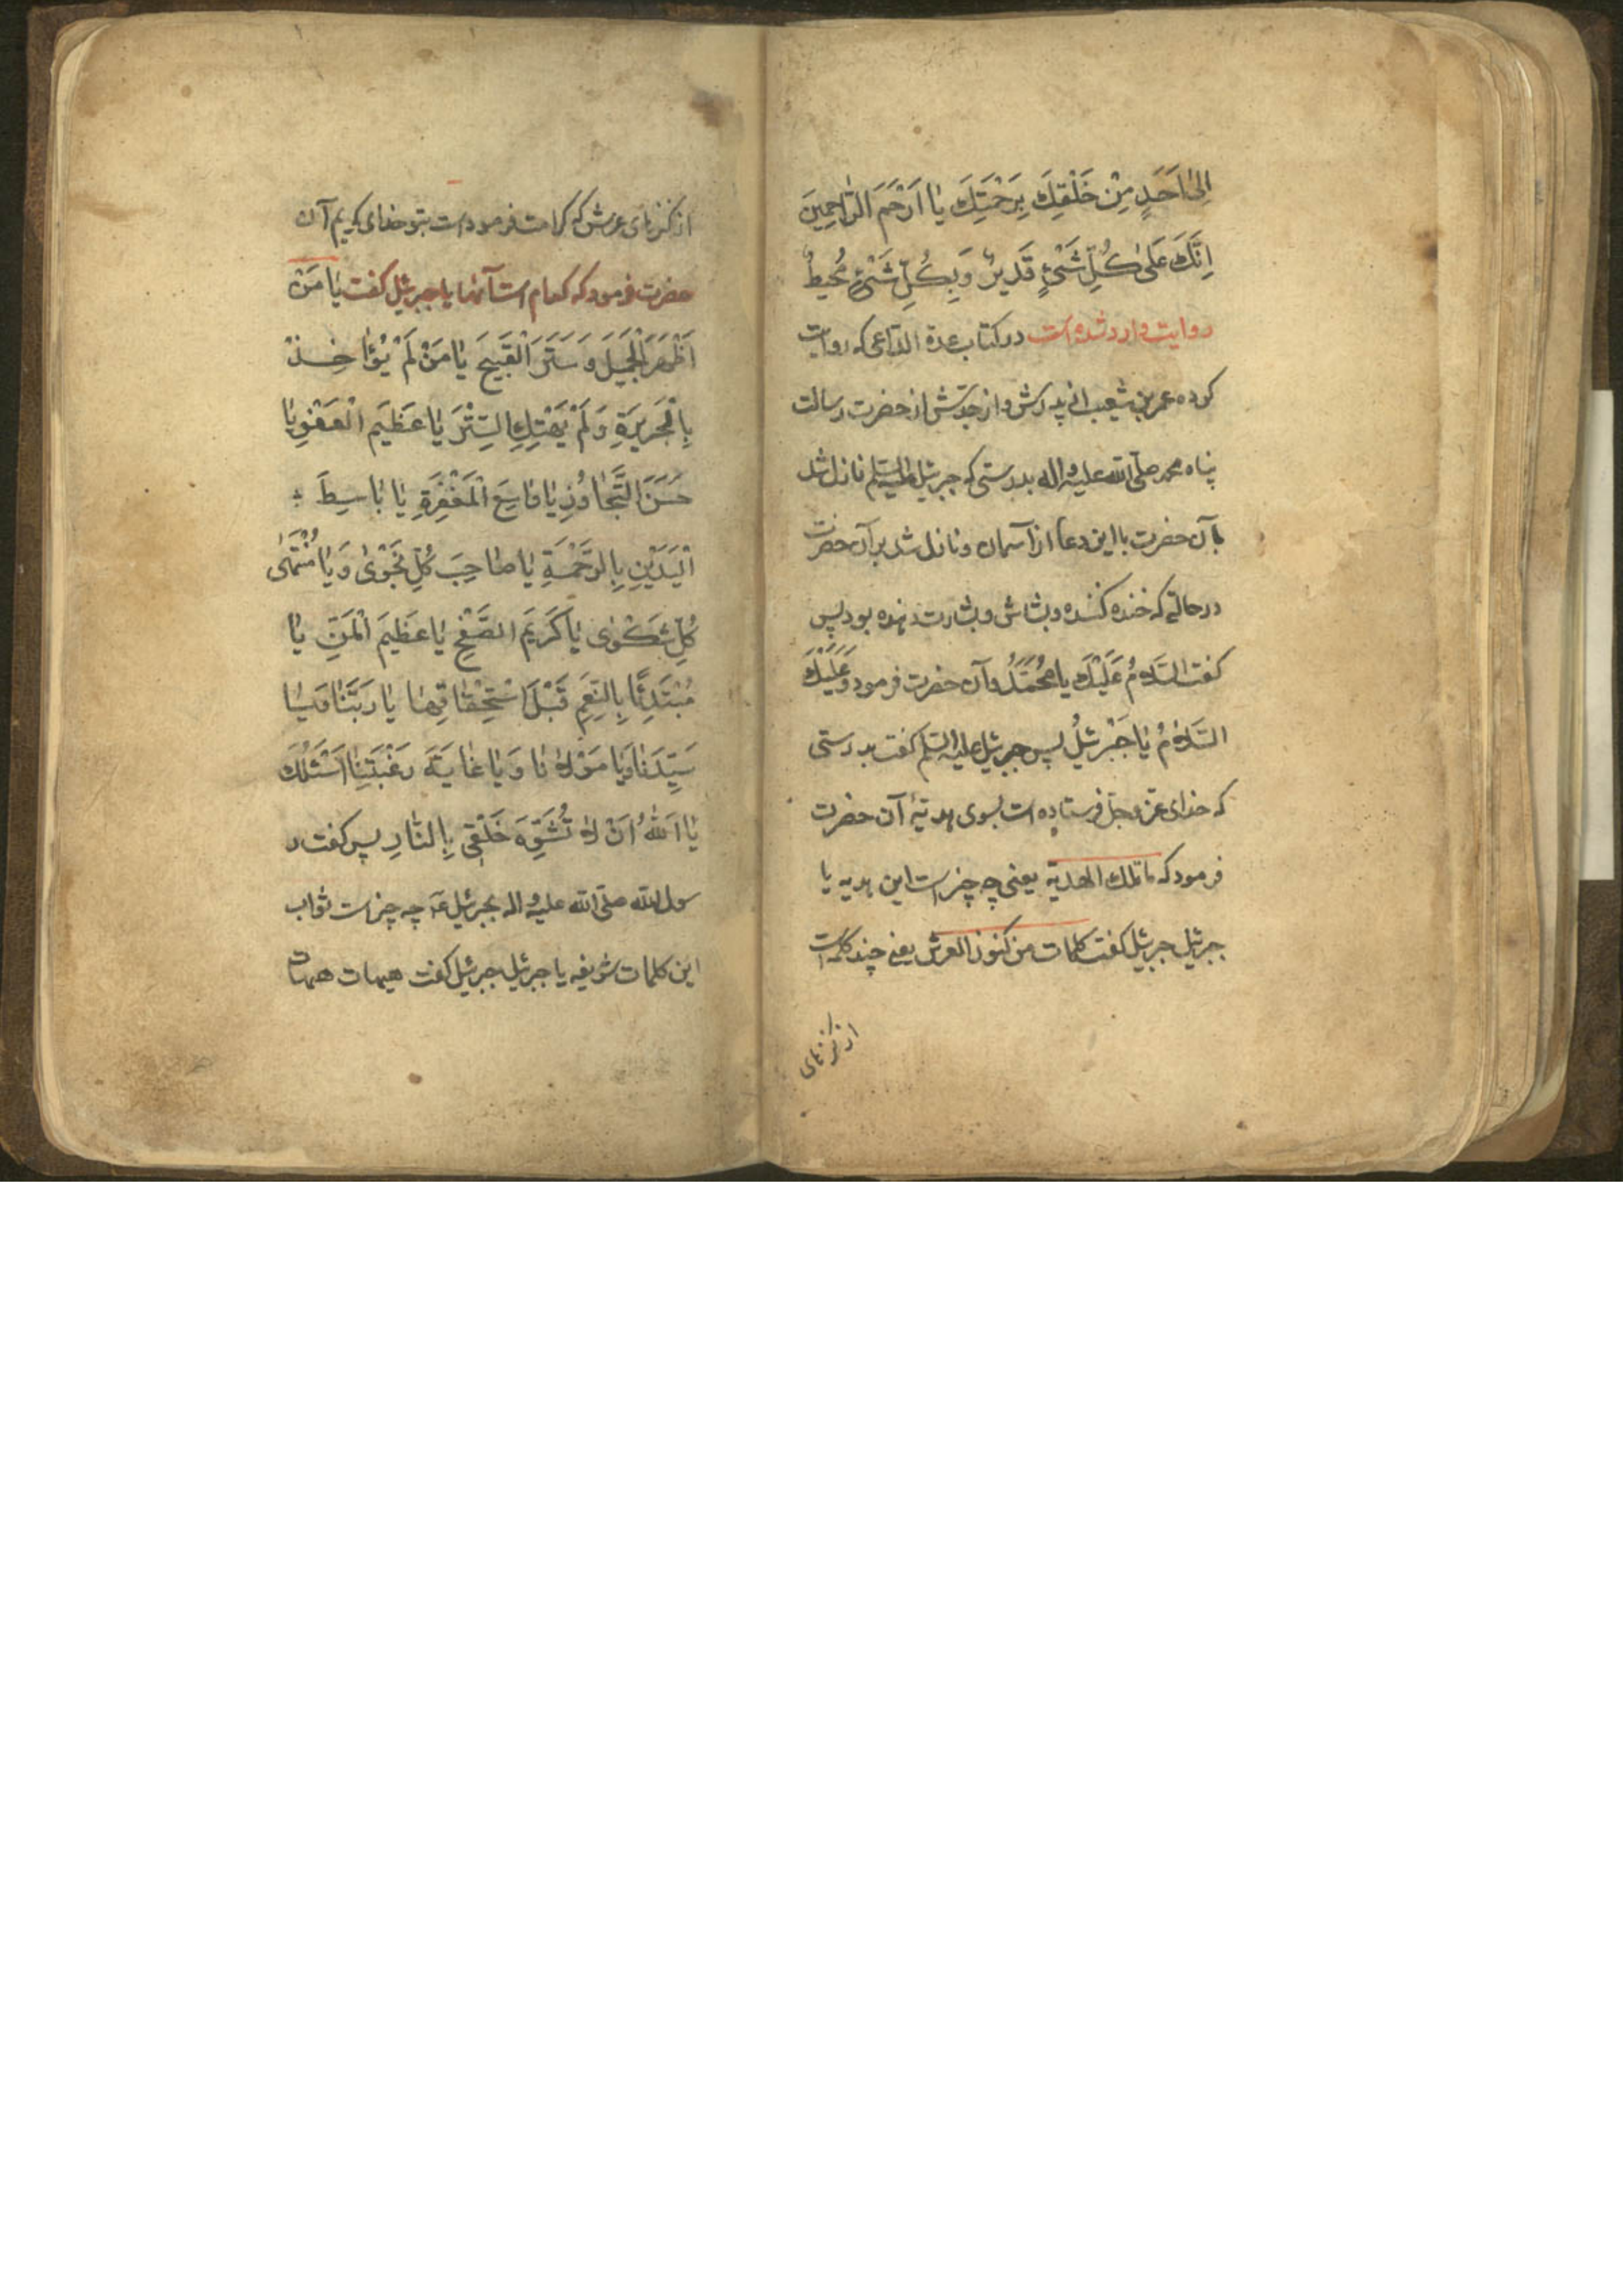 اِلىٰ اَحَدٍ مِنْ خَلْقِكَ بِرَحْمَتِكَ يٰا اَرْحَمَ الرّٰاحِمِينَ
اِنَّكَ عَلىٰ كُلِّ شَىْءٍ قَدِيرٌ وَبِكُلِّ شَىْءٍ مُحِيطٌ
روايت وارد شده است در كتاب عدة الداعى كه روايت
كرده عمر بن شعيب از پدرش و از جدّش از حضرت رسالت
پناه محمد صلّى اللّه عليه واله بدرستى كه جبرئيل عليه السّلم نازل شد
بآن حضرت با اين دعا از آسمان و نازل شد بر آن حضرت
در حالتى كه خنده كننده و بشاش و بشارت دهنده بود پس
كفت السَّلٰامُ عَلَيْكَ يٰا مُحَمَّدُ و آن حضرت فرمود وَعَلَيْكَ
السَّلٰامُ يٰا جَبْرَئيلُ پس جبرئيل عليه السّلم كفت بدرستى
كه خداى عزّ و جلّ فرستاده است بسوى هديّهٔ آن حضرت
فرمود كه ما تلك الهديّة يعنى چه چيز است اين هديه يا
جبرئيل جبرئيل كفت كلمات من كنوز العرش يعنى چند كلمه است
از كنزهاى
از كنزهاى عرش كه كرامت فرموده است بتو خداى كريم آن
حضرت فرمود كه كدام است آنها يا جبرئيل كفت يٰا مَنْ
اَظْهَرَ الْجَمِيلَ وَ سَتَرَ الْقَبِيحَ يٰا مَنْ لَمْ يُؤٰاخِذْ
بِالْجَرِيرَةِ وَلَمْ يَهْتِكِ السِّتْرَ يٰا عَظِيَم الْعَفْوِ يٰا
حَسَنَ التَّجٰاوُزِ يٰا وٰاسِعَ الْمَغْفِرَةِ يٰا بٰاسِطَ
الْيَدَيْنِ بِالرَّحْمَةِ يٰا صٰاحِبَ كُلِّ نَجْوىٰ وَيٰا مُنْتَهىٰ
كُلِّ شَكْوىٰ يٰا كَرِيَم الصَّفْحِ يٰا عَظِيَم الْمَنِّ يٰا
مُبْتَدِئًا بِالنِّعَمِ قَبْلَ اسْتِحْقٰاقِهٰا يٰا رَبَّنٰا وَيٰا
سَيِّدَنٰا وَيٰا مَوْلٰانٰا وَيٰا غٰايَةَ رَغْبَتِنٰا اَسْئَلُكَ
يٰا اَللّٰهُ اَنْ لٰا تُشَوِّهَ خَلْقِى بِالنّٰارِ پس كفت ر
سول اللّه صلّى اللّه عليه واله بجبرئيل عه چه چيز است ثواب
اين كلمات شريفه يا جبرئيل جبرئيل كفت هيهات هيهات